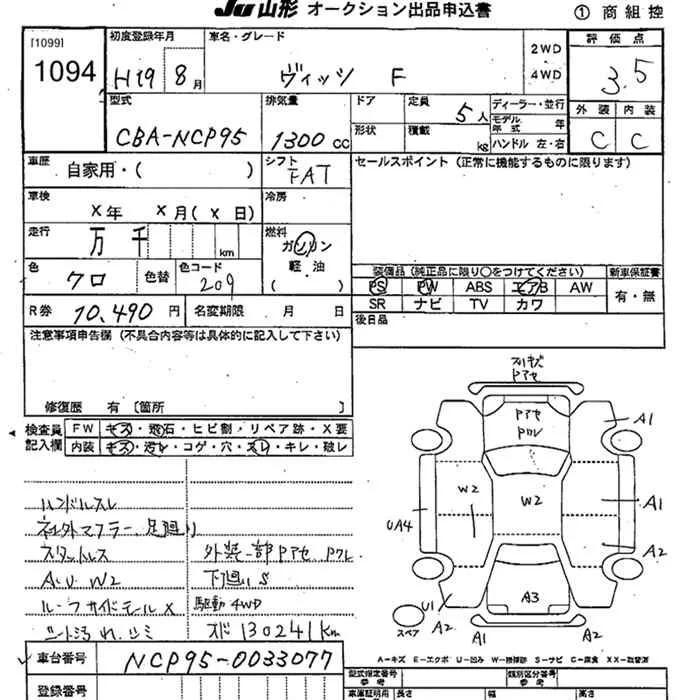 JU山形 オークション出品申込書
① 商組控
[1099]
1094
初度登録年月
H19 8月
車名・グレード
ヴィッツ F
2WD
4WD
評価点
3.5
型式
CBA-NCP95
排気量
1300 CC
ドア
定員
5人
形状
積載
kg
ディーラー・並行
モデル年式 年
ハンドル 左・右
外装
内装
C
C
車歴
自家用・( )
シフト
FAT
セールスポイント (正常に機能するものに限ります)
車検
×年 ×月(×日)
冷房
走行
万 千 km
燃料
ガソリン
軽・油
( )
色
クロ
色替
色コード
209
装備品 (純正品に限り○をつけてください)
新車保証書
PS PW ABS エアB AW
有・無
SR ナビ TV カワ
R券
10,490 円
名変期限 月 日
後日品
注意事項申告欄 (不具合内容等は具体的に記入して下さい)
修復歴 有 [箇所 ]
検査員記入欄
FW キズ・飛石・ヒビ割・リペア跡・X要
内装 キズ・汚レ・コゲ・穴・スレ・キレ・破レ
ハンドルスレ
社外マフラー、足廻り
スタットレス
A.U W2
ルーフサイドモールX
シート汚れ、シミ
外装一部Pアセ、Pクレ
下廻りS
駆動4WD
オド130241Km
スリキズ
Pアセ
Pアセ
Pクレ
A1
W2
W2
A1
UA4
A2
U1
A2
A3
A1
A2
スペア
A-キズ E-エクボ U-凹み W-補修跡 S-サビ C-腐食 XX-取替済
車台番号
NCP95-0033077
登録番号
型式指定番号
参考
類別区分番号
参考
車庫証明用
長さ
幅
高さ